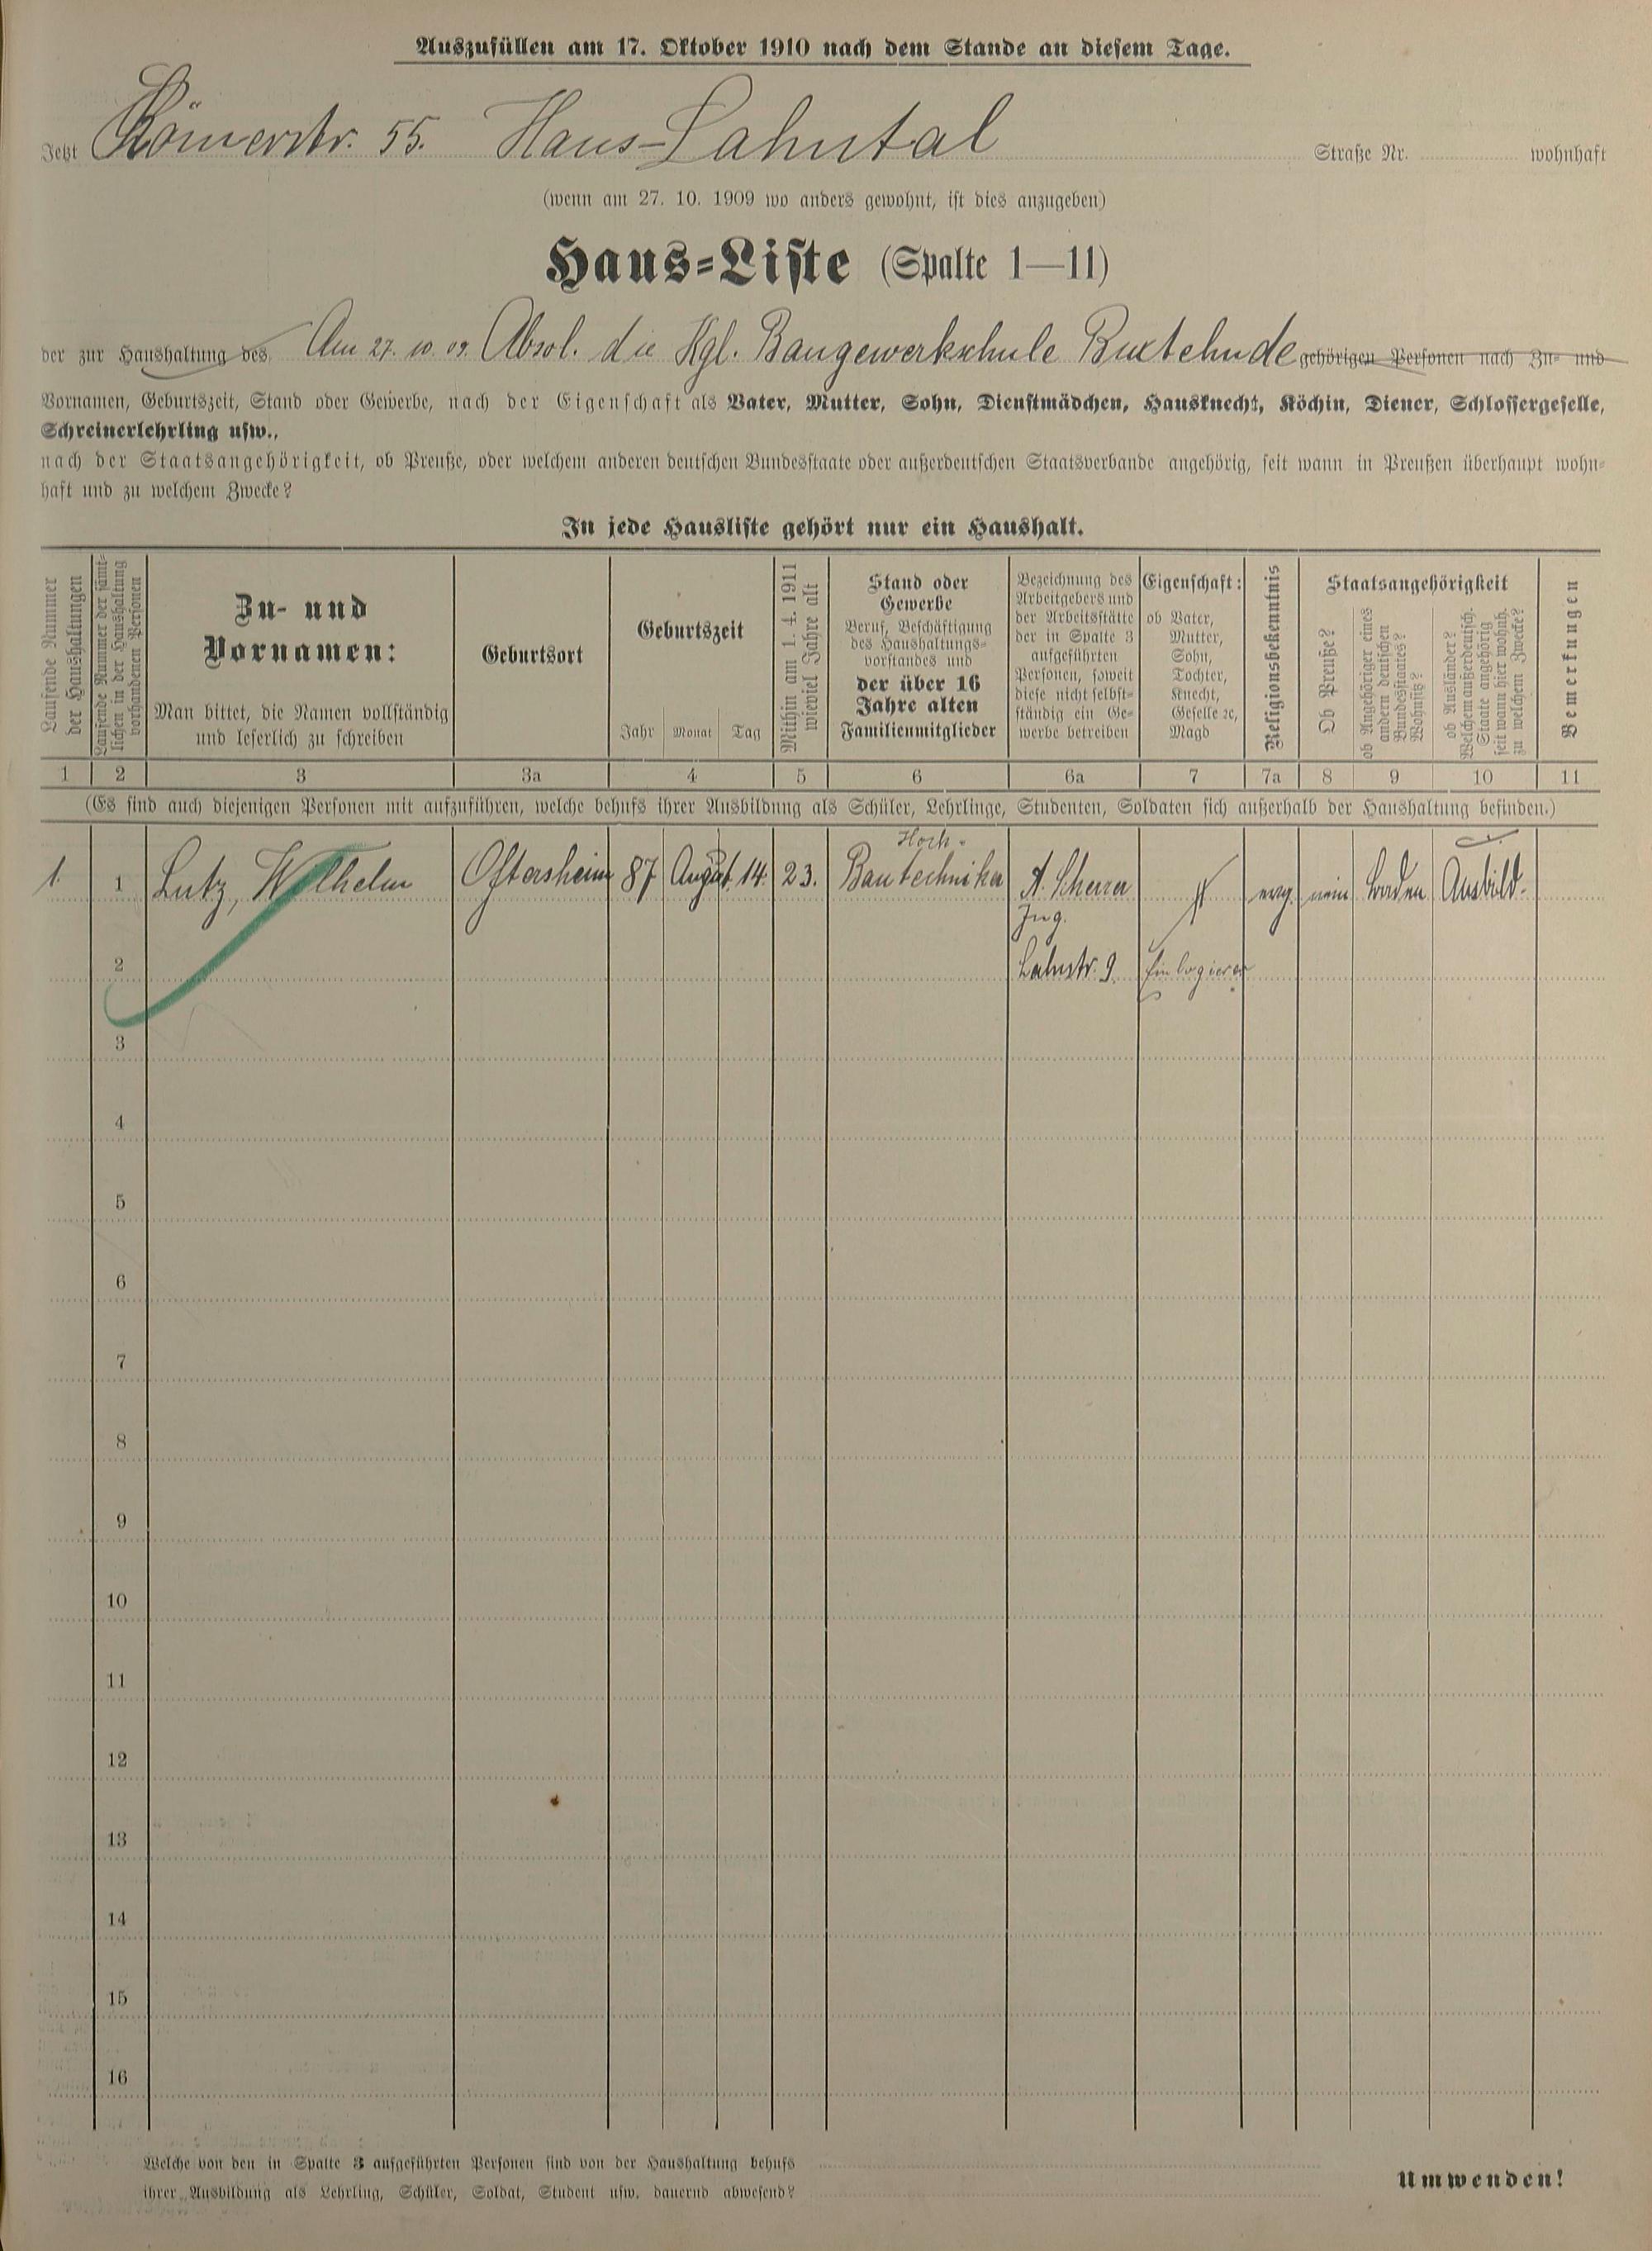 Auszufüllen am 17. Oktober 1910 nach dem Stande an diesem Tage.
Jetzt Römerstr. 55. Haus-Lahntal Straße Nr. wohnhaft
(wenn am 27. 10. 1909 wo anders gewohnt, ist dies anzugeben)
Haus-Liste (Spalte 1—11)
der zur Haushaltung des Am 27. 10. 09. Absol. die Kgl. Baugewerkschule Buxtehude gehörigen Personen nach Zu- und
Vornamen, Geburtszeit, Stand oder Gewerbe, nach der Eigenschaft als Vater, Mutter, Sohn, Dienstmädchen, Hausknecht, Köchin, Diener, Schlossergeselle,
Schreinerlehrling usw.,
nach der Staatsangehörigkeit, ob Preuße, oder welchem anderen deutschen Bundesstaate oder außerdeutschen Staatsverbande angehörig, seit wann in Preußen überhaupt wohn-
haft und zu welchem Zwecke?
In jede Hausliste gehört nur ein Haushalt.
Laufende Nummer
der Haushaltungen
Laufende Nummer der sämt-
lichen in der Haushaltung
vorhandenen Personen
Zu- und
Vornamen:
Man bittet, die Namen vollständig
und leserlich zu schreiben
Geburtsort
Geburtszeit
Jahr Monat Tag
Mithin am 1. 4. 1911
wieviel Jahre alt
Stand oder
Gewerbe
Beruf, Beschäftigung
des Haushaltungs-
vorstandes und
der über 16
Jahre alten
Familienmitglieder
Bezeichnung des
Arbeitgebers und
der Arbeitsstätte
der in Spalte 3
aufgeführten
Personen, soweit
diese nicht selbst-
ständig ein Ge-
werbe betreiben
Eigenschaft:
ob Vater,
Mutter,
Sohn,
Tochter,
Knecht,
Geselle 2c,
Magd
Religionsbekenntnis
Staatsangehörigkeit
Ob Preuße?
ob Angehöriger eines
andern deutschen
Bundesstaates?
Wohnsitz?
ob Ausländer?
Welchem außerdeutsch.
Staate angehörig
seit wann hier wohnh.
zu welchem Zwecke?
Bemerkungen
1 2 3 3a 4 5 6 6a 7 7a 8 9 10 11
(Es sind auch diejenigen Personen mit aufzuführen, welche behufs ihrer Ausbildung als Schüler, Lehrlinge, Studenten, Soldaten sich außerhalb der Haushaltung befinden.)
Hoch-
1. 1 Lutz, Wilhelm Oftersheim 87 August 14. 23. Bautechniker A. Scherrer ev. nein Baden Ausbild.
Ing.
2 Lahnstr. 9. Einlogierer
3
4
5
6
7
8
9
10
11
12
13
14
15
16
Welche von den in Spalte 3 aufgeführten Personen sind von der Haushaltung behufs
ihrer Ausbildung als Lehrling, Schüler, Soldat, Student usw. dauernd abwesend?
Umwenden!